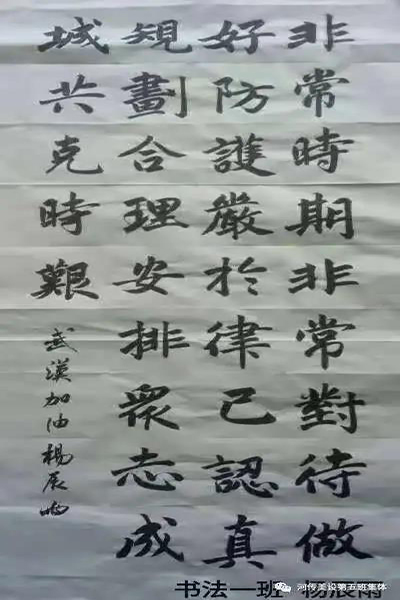 非常時期非常對待做
好防護嚴於律己認真
規劃合理安排衆志成
城共克時艱
武漢加油楊辰雨
书法一班
河传美设第五班集体